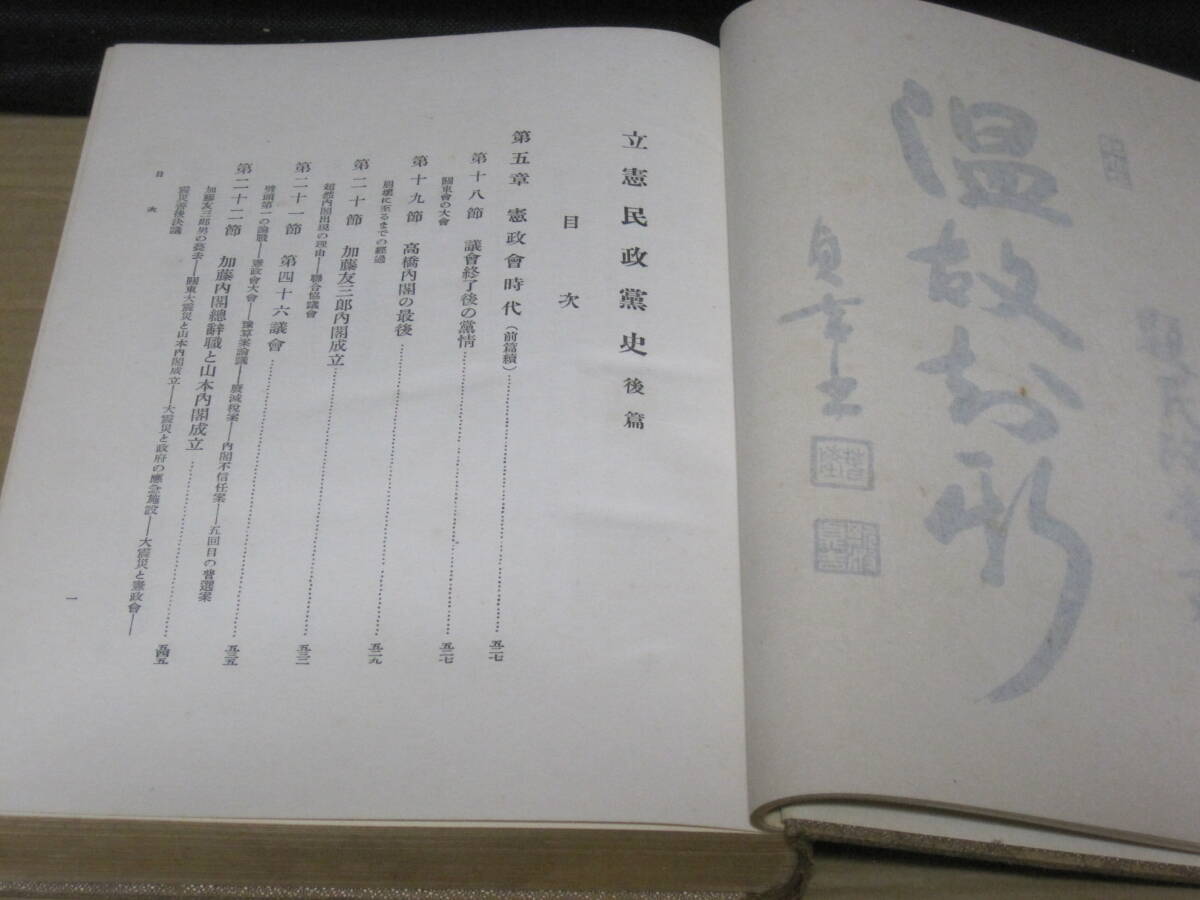 溫故知新
貞幸書
立憲民政黨史 後篇
目次
第五章 憲政會時代（前篇續）……五二七
第十八節 議會終了後の黨情……五二七
關東會の大會
第十九節 高橋內閣の最後……五二九
崩壞に至るまでの經過
第二十節 加藤友三郎內閣成立……五三二
超然內閣出現の理由――聯合協議會
第二十一節 第四十六議會……五三五
劈頭第一の論戰――憲政會大會――豫算案論議――廢減稅案――內閣不信任案――五回目の普選案
第二十二節 加藤內閣總辭職と山本內閣成立……五四五
加藤友三郎男の薨去――關東大震災と山本內閣成立――大震災と政府の應急施設――大震災と憲政會――
震災善後決議
目次
一